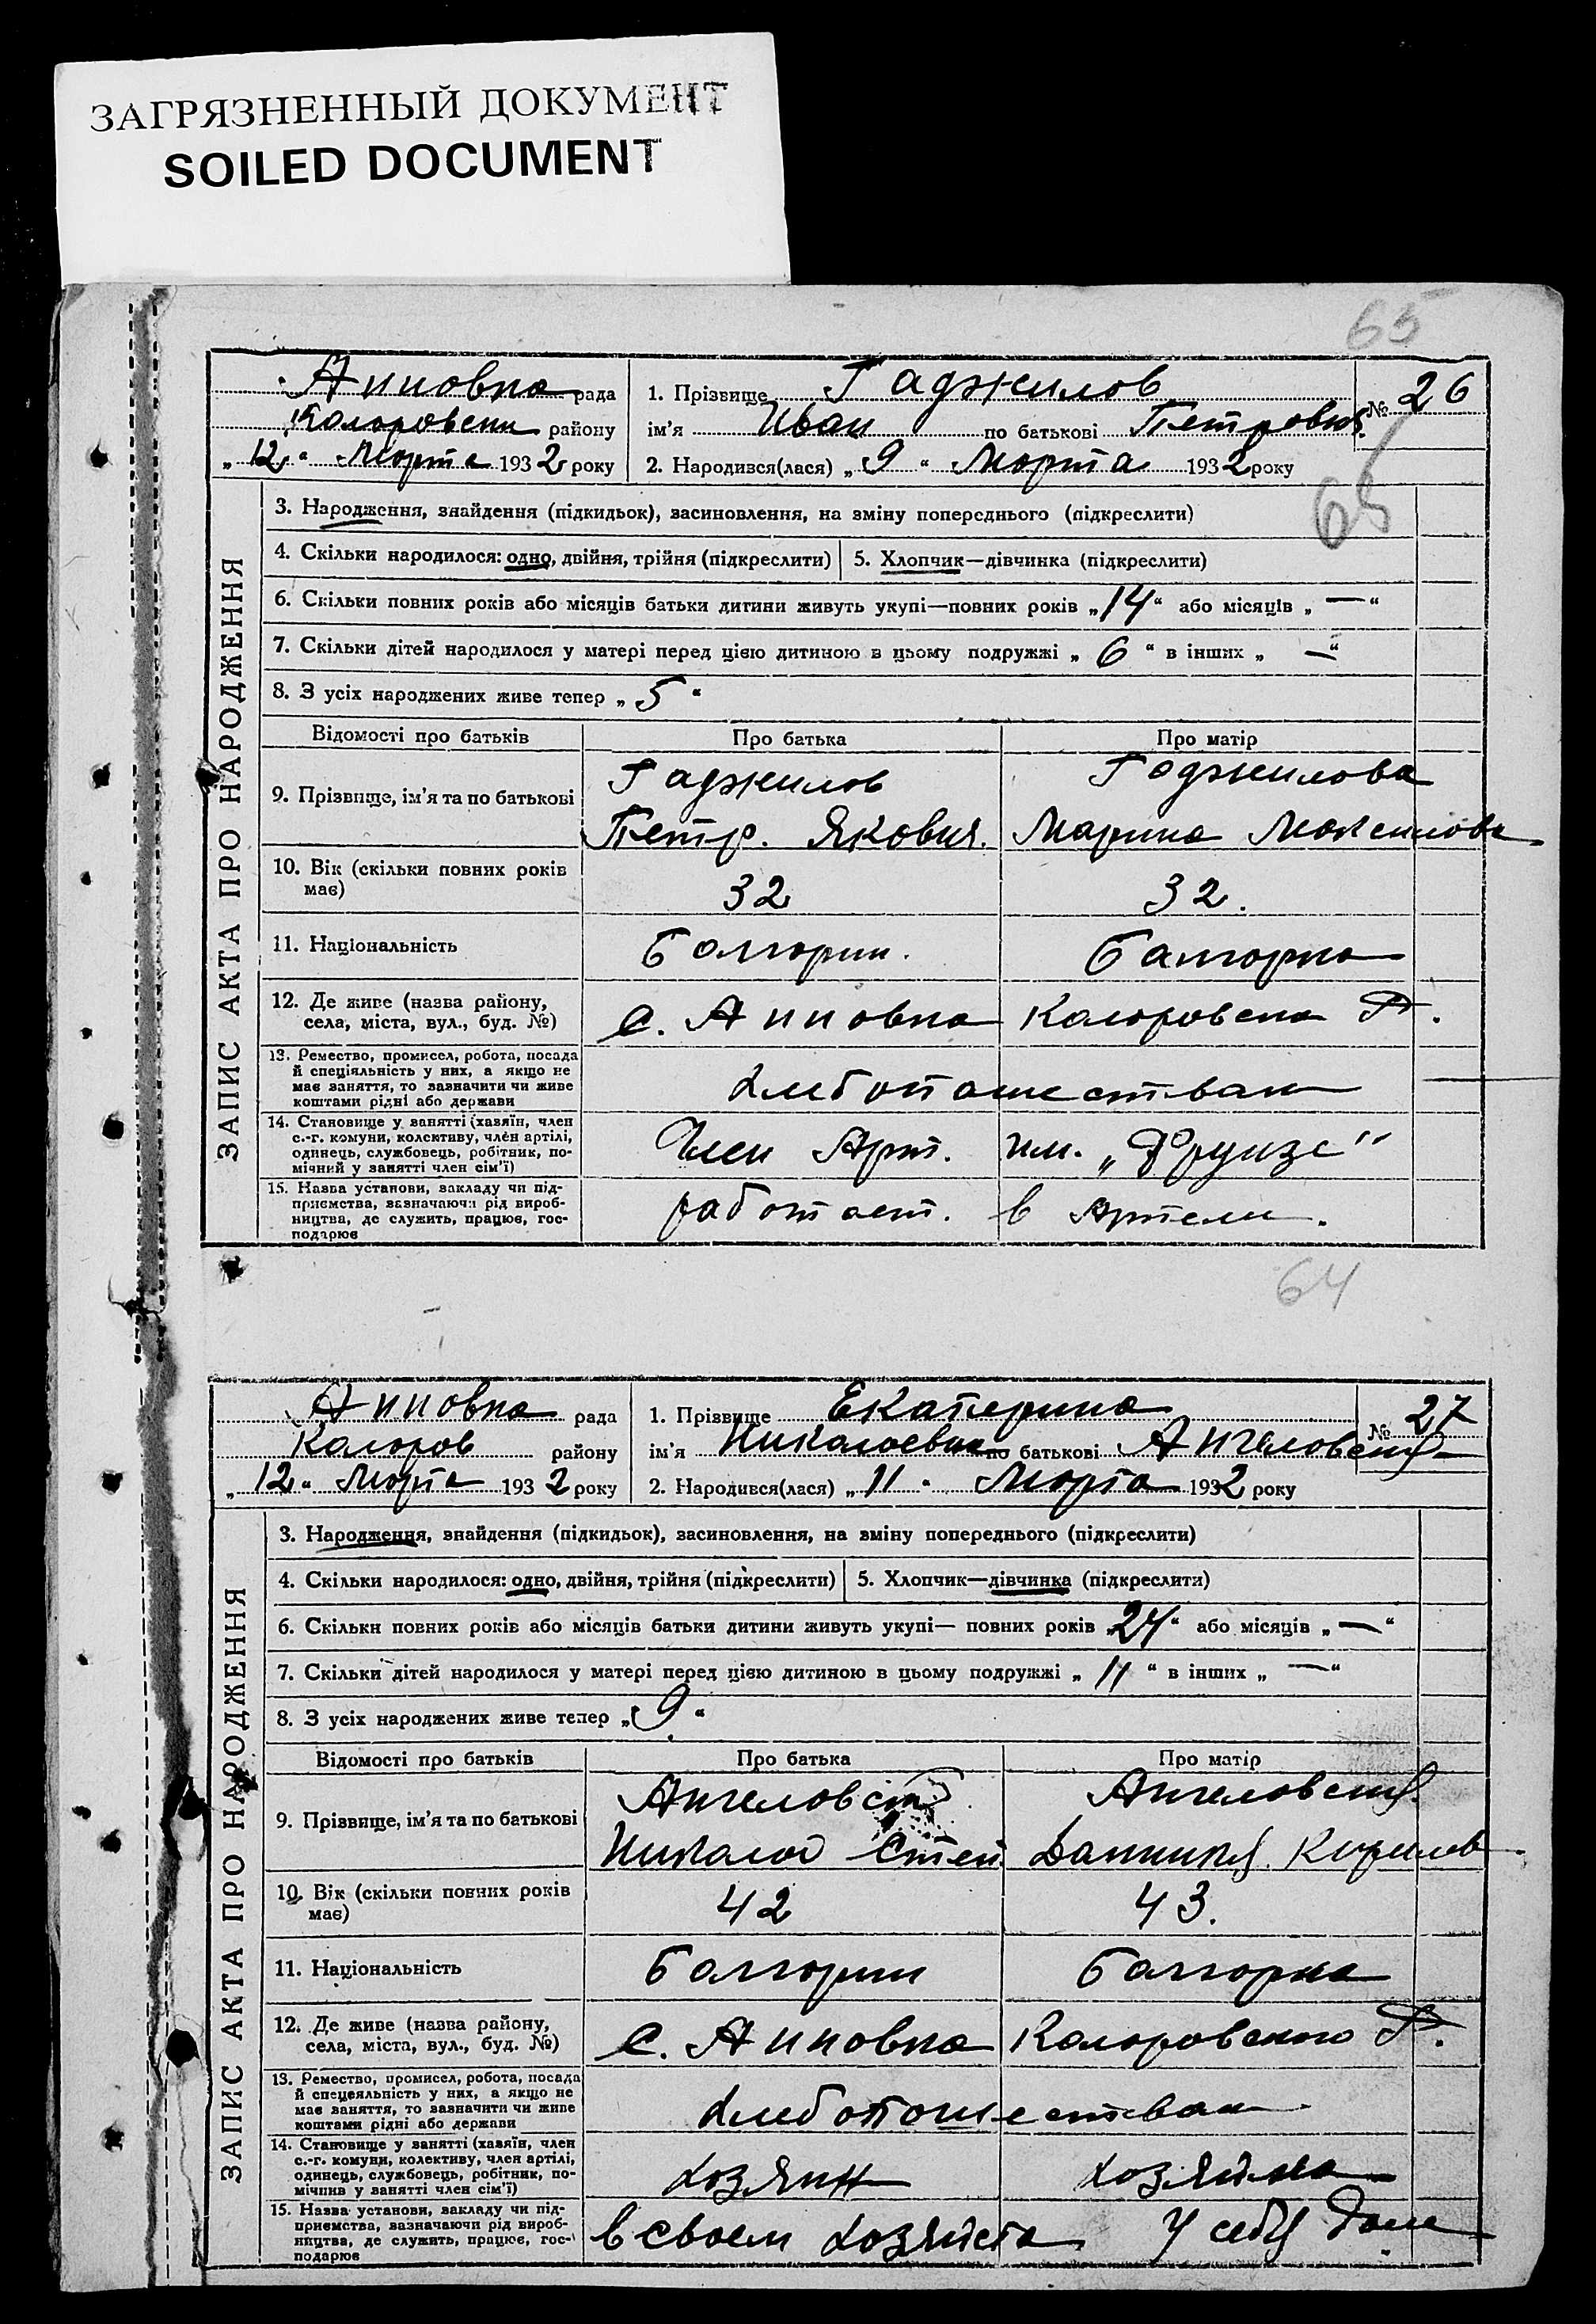 ЗАГРЯЗНЕННЫЙ ДОКУМЕНТ
SOILED DOCUMENT
65
Анновка рада
Коларовски району
„12“ Марта 1932 року
1. Прізвище Гаджилов
ім'я Иван по батькові Петрович.
2. Народився(лася) „9“ Марта 1932 року
№ 26
65
ЗАПИС АКТА ПРО НАРОДЖЕННЯ
3. Народження, знайдення (підкидьок), засиновлення, на зміну попереднього (підкреслити)
4. Скільки народилося: одно, двійня, трійня (підкреслити) 5. Хлопчик—дівчинка (підкреслити)
6. Скільки повних років або місяців батьки дитини живуть укупі—повних років „14“ або місяців „—“
7. Скільки дітей народилося у матері перед цією дитиною в цьому подружжі „6“ в інших „—“
8. З усіх народжених живе тепер „5“
Відомості про батьків Про батька Про матір
9. Прізвище, ім'я та по батькові
Гаджилов
Петр. Якович.
Гаджилова
Марина
10. Вік (скільки повних років
має)
32 32.
11. Національність Болгарин. Балгарка
12. Де живе (назва району,
села, міста, вул., буд. №)
с. Анновка Коларовска Р.
13. Ремество, промисел, робота, посада
й спеціяльність у них, а якщо не
має заняття, то зазначити чи живе
коштами рідні або держави
14. Становище у занятті (хазяїн, член
с.-г. комуни, колективу, член артілі,
одинець, службовець, робітник, по-
мічний у занятті член сім'ї)
Член Арт. им. „Фрунзе“
15. Назва установи, закладу чи під-
приємства, зазначаючи рід вироб-
ництва, де служить, працює, гос-
подарює
работает. в Артели.
64
Анновка рада
Коларов району
„12“ Марта 1932 року
1. Прізвище Екатерина
ім'я Николаевна по батькові
2. Народився(лася) „11“ Марта 1932 року
№ 27
ЗАПИС АКТА ПРО НАРОДЖЕННЯ
3. Народження, знайдення (підкидьок), засиновлення, на зміну попереднього (підкреслити)
4. Скільки народилося: одно, двійня, трійня (підкреслити) 5. Хлопчик—дівчинка (підкреслити)
6. Скільки повних років або місяців батьки дитини живуть укупі— повних років „24“ або місяців „—“
7. Скільки дітей народилося у матері перед цією дитиною в цьому подружжі „11“ в інших „—“
8. З усіх народжених живе тепер „9“
Відомості про батьків Про батька Про матір
9. Прізвище, ім'я та по батькові
Николай Степ.
Кирилов
10. Вік (скільки повних років
має)
42 43.
11. Національність Болгарин Болгарка
12. Де живе (назва району,
села, міста, вул., буд. №)
с. Анновка Коларовского Р.
13. Ремество, промисел, робота, посада
й спецеяльність у них, а якщо не
має заняття, то зазначити чи живе
коштами рідні або держави
14. Становище у занятті (хазяїн, член
с.-г. комуни, колективу, член артілі,
одинець, службовець, робітник, по-
мічнив у занятті член сім'ї)
хозяин хозяйка
15. Назва установи, закладу чи під-
приємства, зазначаючи рід вироб-
ництва, де служить, працює, гос-
подарює
в своем У себя доме